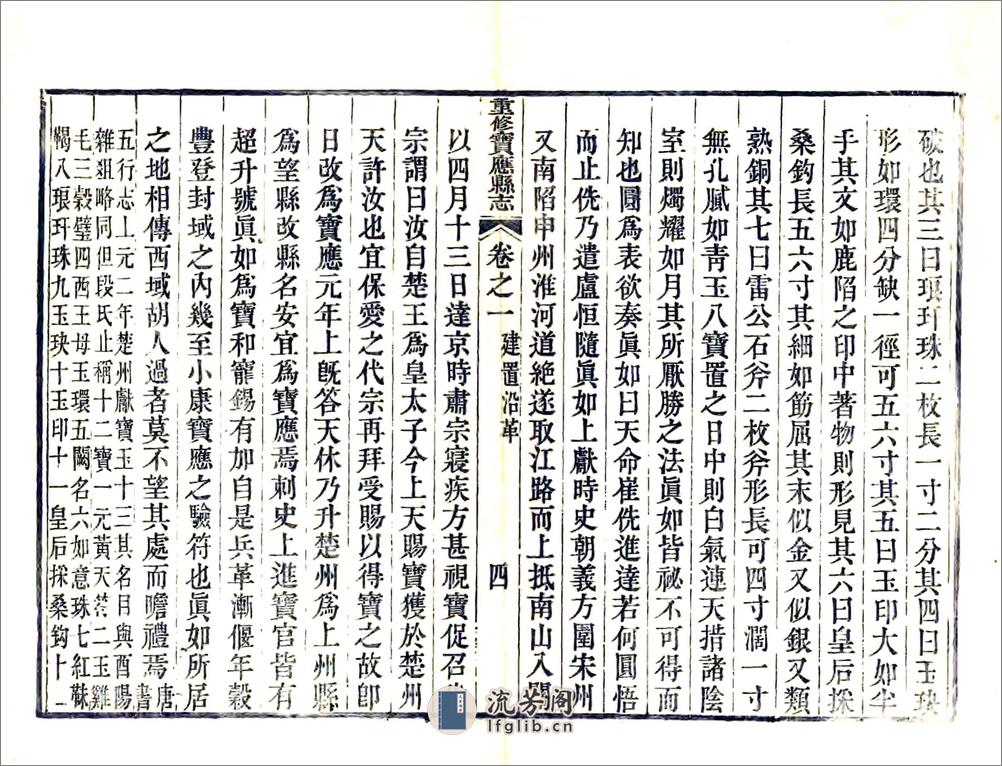 破也其三曰琅玕珠二枚長一寸二分其四曰玉玦
形如環四分缺一徑可五六寸其五曰玉印大如半
手其文如鹿陷之印中著物則形見其六曰皇后採
桑鈎長五六寸其細如筋屈其末似金又似銀又類
熟銅其七曰雷公石斧二枚斧形長可四寸濶一寸
無孔膩如青玉八寶置之日中則白氣連天措諸陰
室則燭耀如月其所厭勝之法眞如皆祕不可得而
知也圓爲表欲奏眞如曰天命崔侁進達若何圓悟
而止侁乃遣盧恒隨眞如上獻時史朝義方圍宋州
又南陷申州淮河道絶遂取江路而上抵南山入關
重修寶應縣志 卷之一 建置沿革 四
以四月十三日達京時肅宗寢疾方甚視寶促召
宗謂曰汝自楚王爲皇太子今上天賜寶獲於楚州
天許汝也宜保愛之代宗再拜受賜以得寶之故卽
日改爲寶應元年上旣答天休乃升楚州爲上州縣
爲望縣改縣名安宜爲寶應焉刺史上進寶官皆有
超升號眞如爲寶和寵錫有加自是兵革漸偃年穀
豐登封域之內幾至小康寶應之驗符也眞如所居
之地相傳西域胡人過者莫不望其處而瞻禮焉唐書
五行志上元二年楚州獻寶玉十三其名目與酉陽
雜俎略同但段氏止稱十二寶一元黃天符二玉雞
毛三穀璧四西王母玉環五闕名六如意珠七紅靺
鞨八琅玕珠九玉玦十玉印十一皇后採桑鈎十
流芳阁
glib.cn